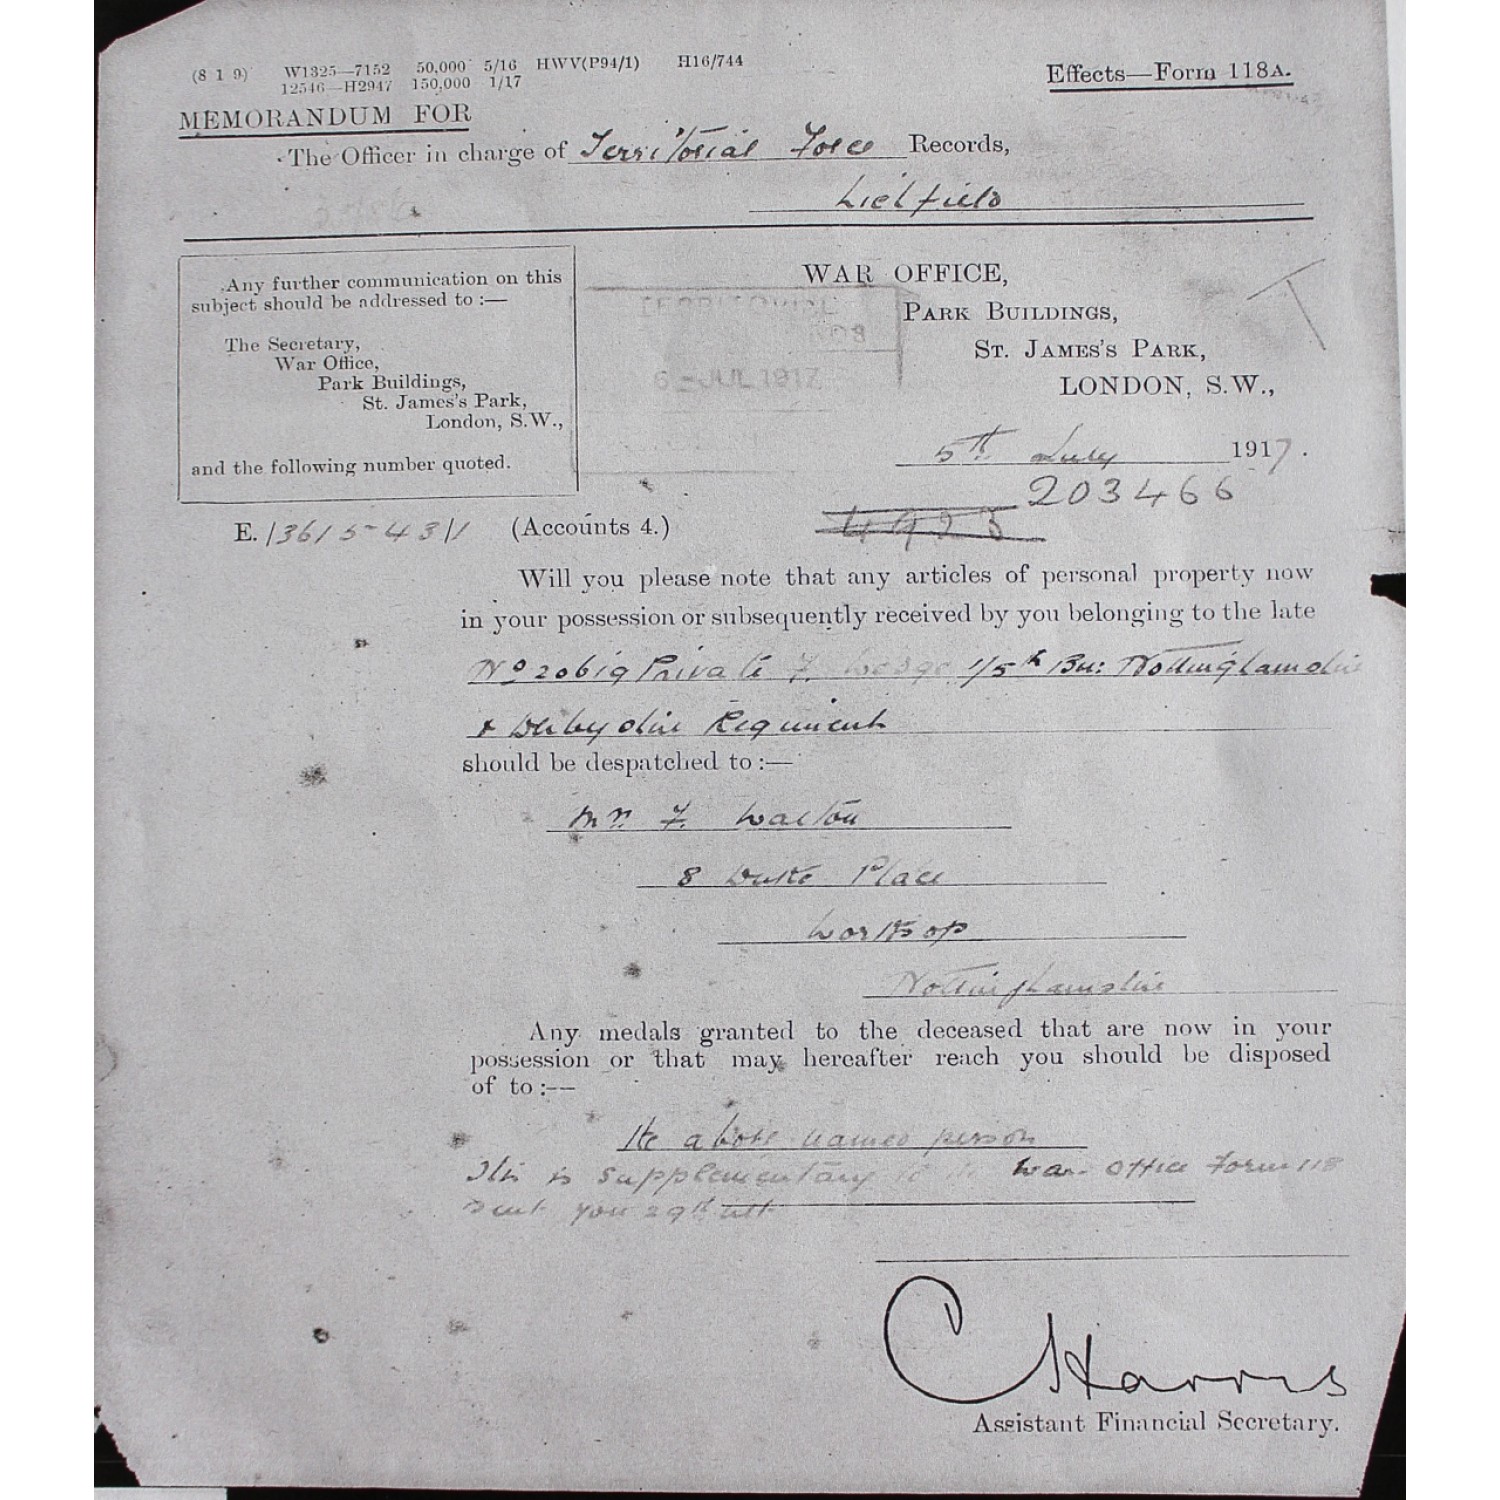 (8 1 9) W1325—7152 50,000 5/16 HWV(P94/1) H16/744
12546—H2947 150,000 1/17
Effects—Form 118A.
MEMORANDUM FOR
The Officer in charge of Territorial Force Records,
Lichfield
Any further communication on this
subject should be addressed to :—
The Secretary,
War Office,
Park Buildings,
St. James's Park,
London, S.W.,
and the following number quoted.
WAR OFFICE,
PARK BUILDINGS,
ST. JAMES'S PARK,
LONDON, S.W.,
6 - JUL 1917
5th July 1917.
203466
4923
E. 13615-43/1 (Accounts 4.)
Will you please note that any articles of personal property now
in your possession or subsequently received by you belonging to the late
No 20619 Private F. 1/5th Bn: Nottinghamshire
& Derbyshire Regiment
should be despatched to :—
Mr. F. Walton
8 Duke Place
Worksop
Nottinghamshire
Any medals granted to the deceased that are now in your
possession or that may hereafter reach you should be disposed
of to :—
The above named person
This is supplementary to War Office Form 118
sent you 29th ult
C Harris
Assistant Financial Secretary.